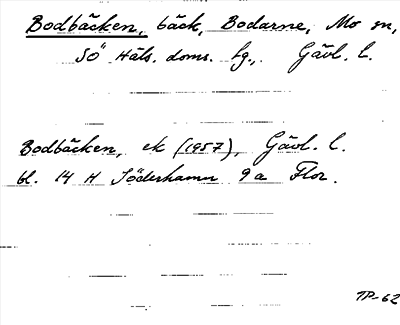 Bodbäcken, bäck, Bodarne, Mo sn,
SÖ Häls. doms. fg., Gävl. l.
Bodbäcken, ek (1957), Gävl. l.
bl. 14 H Söderhamn 9a Flor.
TP-62